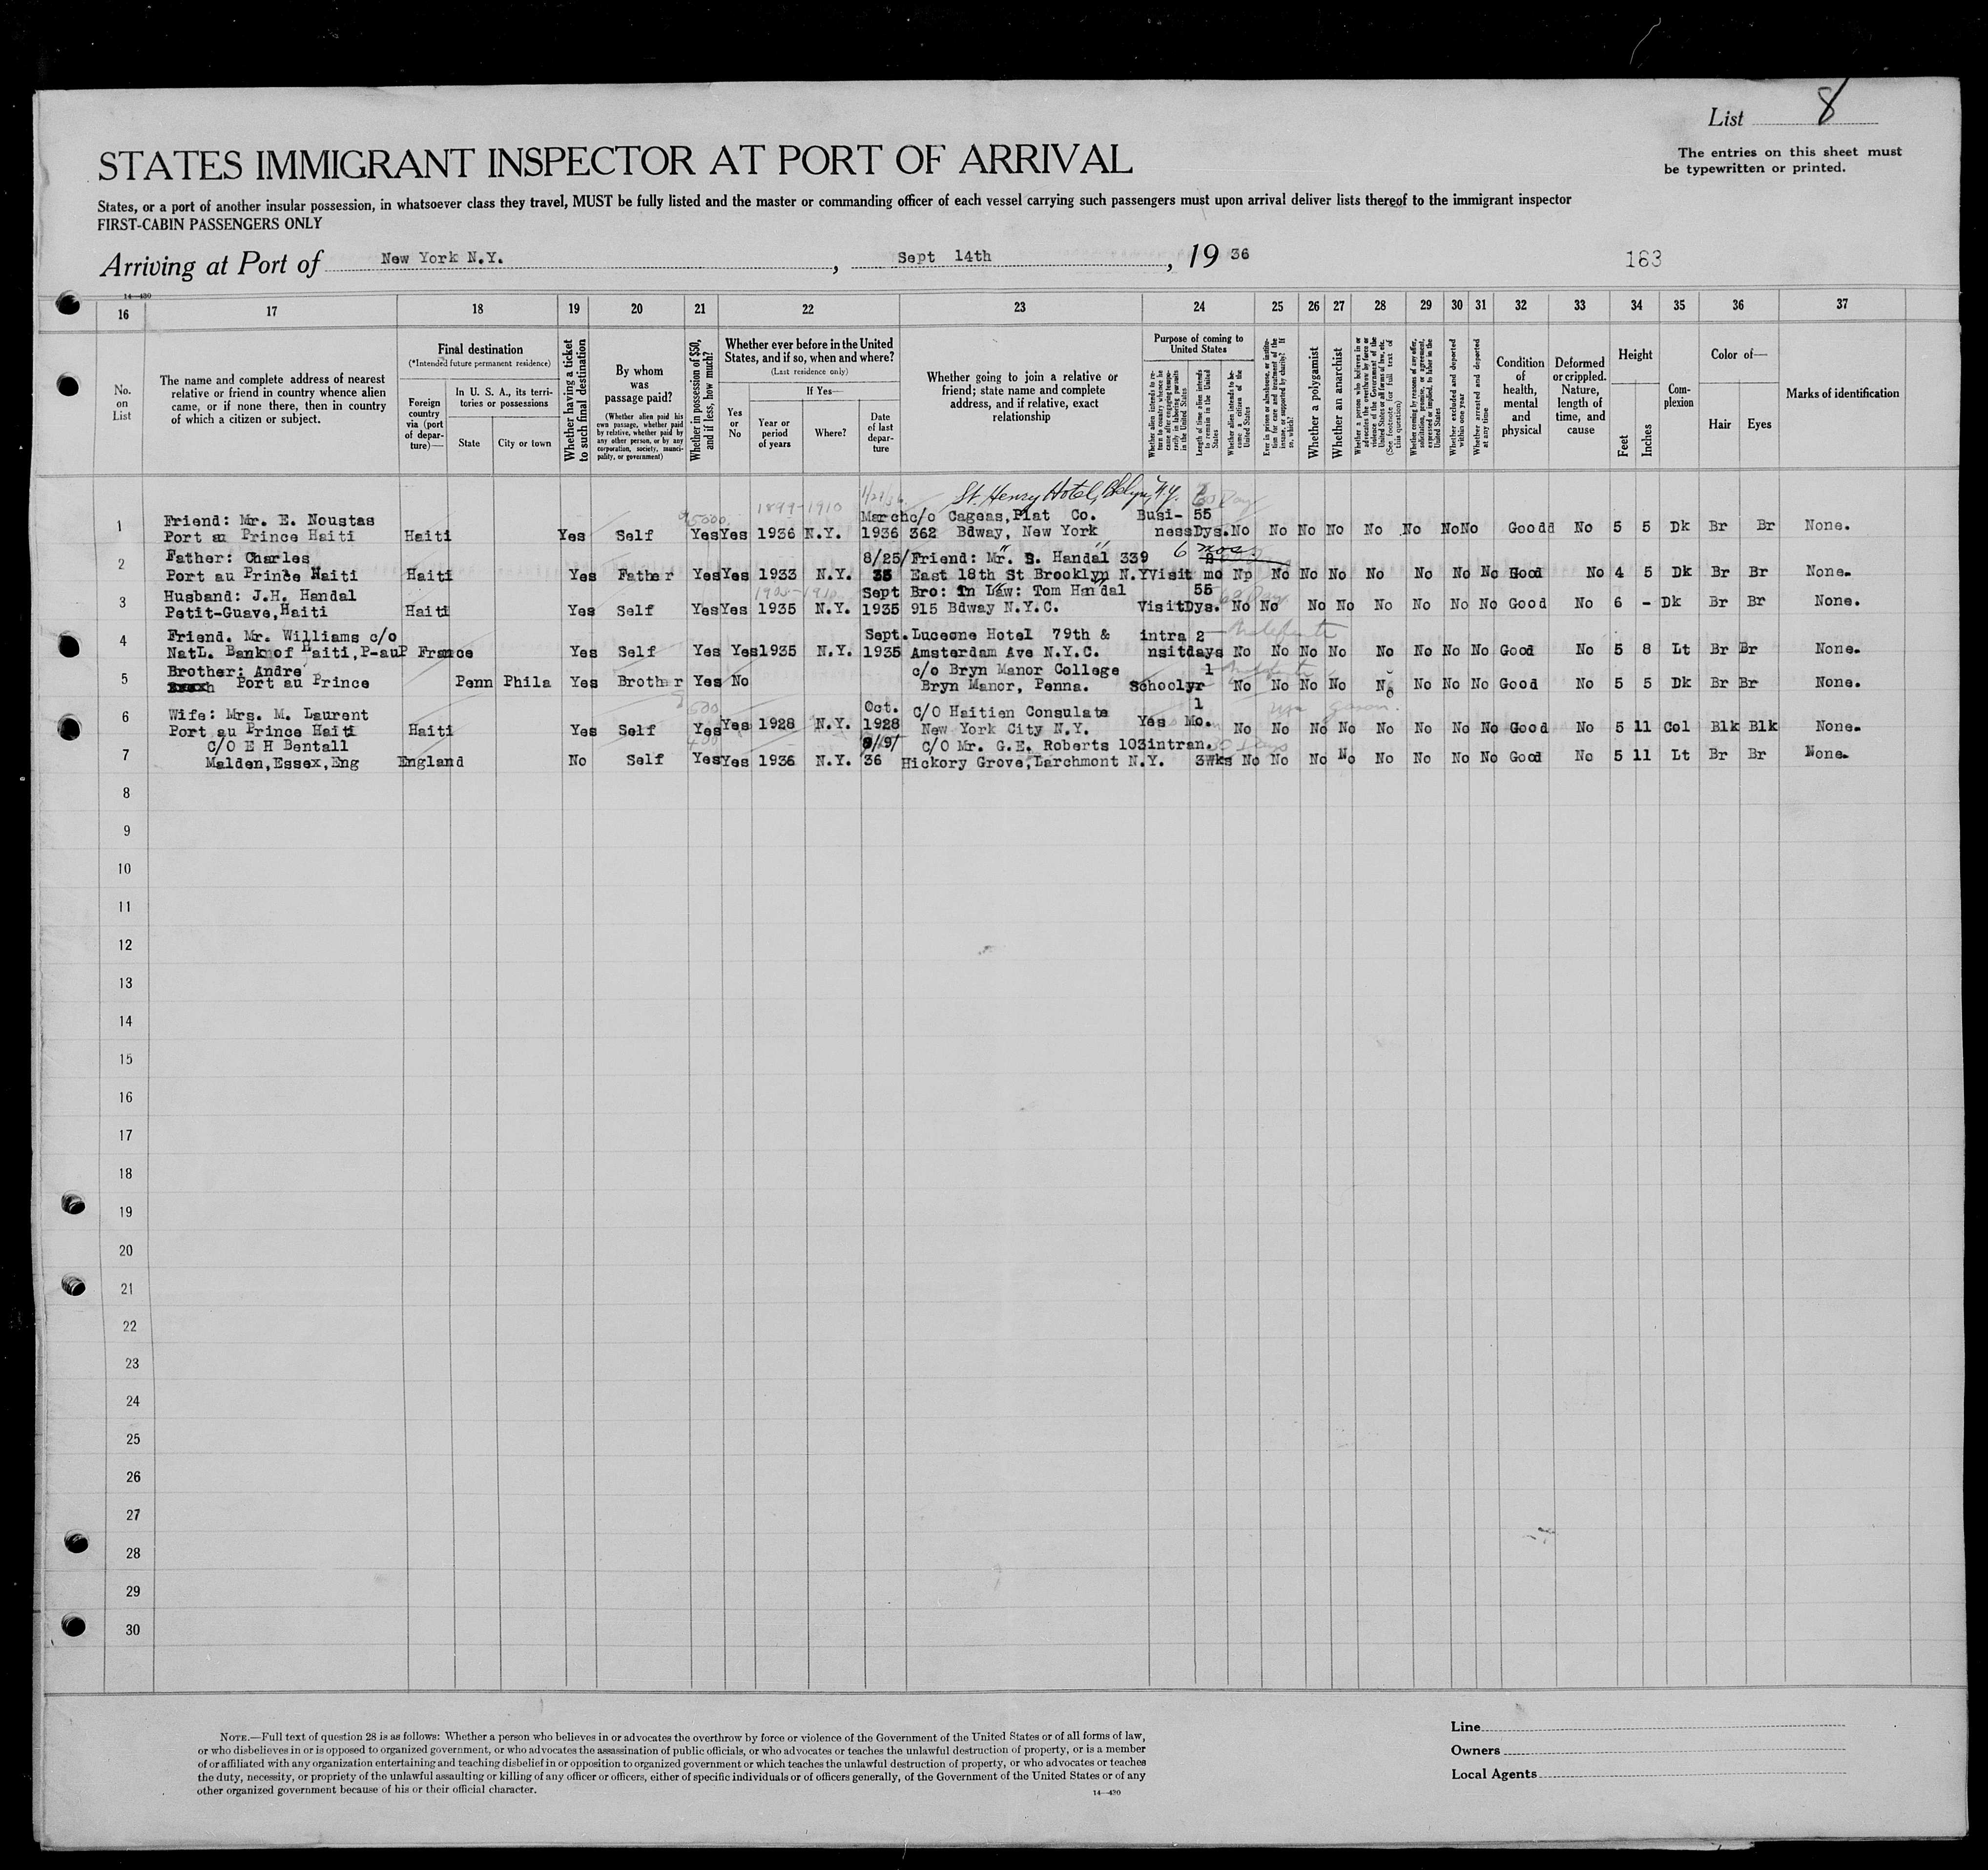 List 8
STATES IMMIGRANT INSPECTOR AT PORT OF ARRIVAL
The entries on this sheet must
be typewritten or printed.
States, or a port of another insular possession, in whatsoever class they travel, MUST be fully listed and the master or commanding officer of each vessel carrying such passengers must upon arrival deliver lists thereof to the immigrant inspector
FIRST-CABIN PASSENGERS ONLY
Arriving at Port of New York N.Y. , Sept 14th , 19 36
183
14—430
16 17 18 19 20 21 22 23 24 25 26 27 28 29 30 31 32 33 34 35 36 37
No. on List
The name and complete address of nearest
relative or friend in country whence alien
came, or if none there, then in country
of which a citizen or subject.
Final destination
(*Intended future permanent residence)
Foreign country via (port of departure)—
In U. S. A., its territories or possessions
State
City or town
Whether having a ticket to such final destination
By whom was passage paid?
(Whether alien paid his own passage, whether paid by relative, whether paid by any other person, or by any corporation, society, municipality, or government)
Whether in possession of $50, and if less, how much?
Whether ever before in the United States, and if so, when and where?
(Last residence only)
Yes or No
If Yes—
Year or period of years
Where?
Date of last departure
Whether going to join a relative or
friend; state name and complete
address, and if relative, exact
relationship
Purpose of coming to United States
Length of time alien intends to remain in the United States
Whether alien intends to become a citizen of the United States
Whether a polygamist
Whether an anarchist
Whether excluded and deported within one year
Whether arrested and deported at any time
Condition of health, mental and physical
Deformed or crippled. Nature, length of time, and cause
Height
Feet
Inches
Complexion
Color of—
Hair
Eyes
Marks of identification
1899-1910 St. Henry Hotel, Bklyn, N.Y.
1 Friend: Mr. E. Noustas March c/o Cageas, Plat Co. Busi- 55
Port au Prince Haiti Haiti Yes Self Yes Yes 1936 N.Y. 1936 362 Bdway, New York ness Dys. No No No No No No No No Goodd No 5 5 Dk Br Br None.
6 mos.
2 Father: Charles 8/25/ Friend: Mr. S. Handal 339 2
Port au Prince Haiti Haiti Yes Father Yes Yes 1933 N.Y. 35 East 18th St Brooklyn N.Y Visit mo Np No No No No No No No Good No 4 5 Dk Br Br None.
3 Husband: J.H. Handal 1905-1910 Sept Bro: in Law: Tom Handal 55
Petit-Guave, Haiti Haiti Yes Self Yes Yes 1935 N.Y. 1935 915 Bdway N.Y.C. Visit Dys. No No No No No No No No Good No 6 - Dk Br Br None.
4 Friend. Mr. Williams c/o Sept. Luceone Hotel 79th & intra 2
NatL. Bank of Haiti, P-auP France Yes Self Yes Yes 1935 N.Y. 1935 Amsterdam Ave N.Y.C. nsit days No No No No No No No No Good No 5 8 Lt Br Br None.
5 Brother: Andre c/o Bryn Manor College 1
Port au Prince Penn Phila Yes Brother Yes No Bryn Manor, Penna. School yr No No No No No No No No Good No 5 5 Dk Br Br None.
6 Wife: Mrs. M. Laurent Oct. C/O Haitien Consulate 1
Port au Prince Haiti Haiti Yes Self Yes Yes 1928 N.Y. 1928 New York City N.Y. Yes Mo. No No No No No No No No Good No 5 11 Col Blk Blk None.
7 C/O E H Bentall c/o Mr. G.E. Roberts 103 intran.
Malden, Essex, Eng England No Self Yes Yes 1936 N.Y. 36 Hickory Grove, Larchmont N.Y. 3Wks No No No No No No No No Good No 5 11 Lt Br Br None.
8
9
10
11
12
13
14
15
16
17
18
19
20
21
22
23
24
25
26
27
28
29
30
NOTE.—Full text of question 28 is as follows: Whether a person who believes in or advocates the overthrow by force or violence of the Government of the United States or of all forms of law,
or who disbelieves in or is opposed to organized government, or who advocates the assassination of public officials, or who advocates or teaches the unlawful destruction of property, or is a member
of or affiliated with any organization entertaining and teaching disbelief in or opposition to organized government or which teaches the unlawful destruction of property, or who advocates or teaches
the duty, necessity, or propriety of the unlawful assaulting or killing of any officer or officers, either of specific individuals or of officers generally, of the Government of the United States or of any
other organized government because of his or their official character.
14—430
Line
Owners
Local Agents